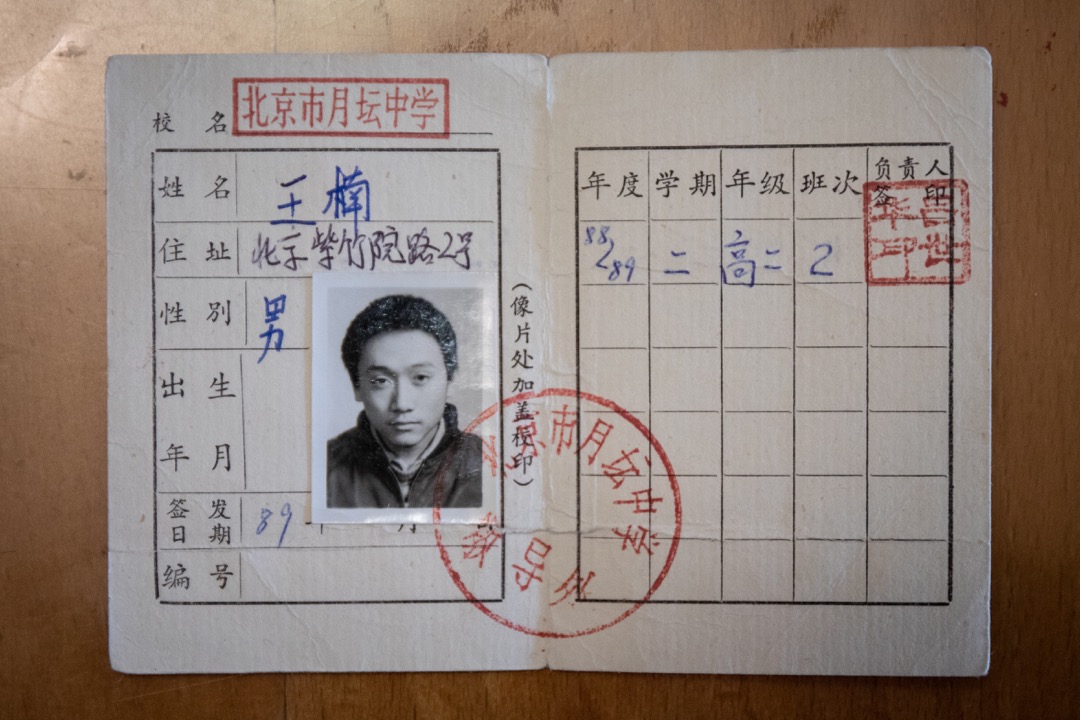 校名 北京市月坛中学
姓名 王楠
住址 北京紫竹院路2号
性别 男
出生
年月
签发
日期 89 年 月
编号
(像片处加盖校印)
年度 学期 年级 班次 负责人
签印
88/89 二 高二 2
北京市月坛中学